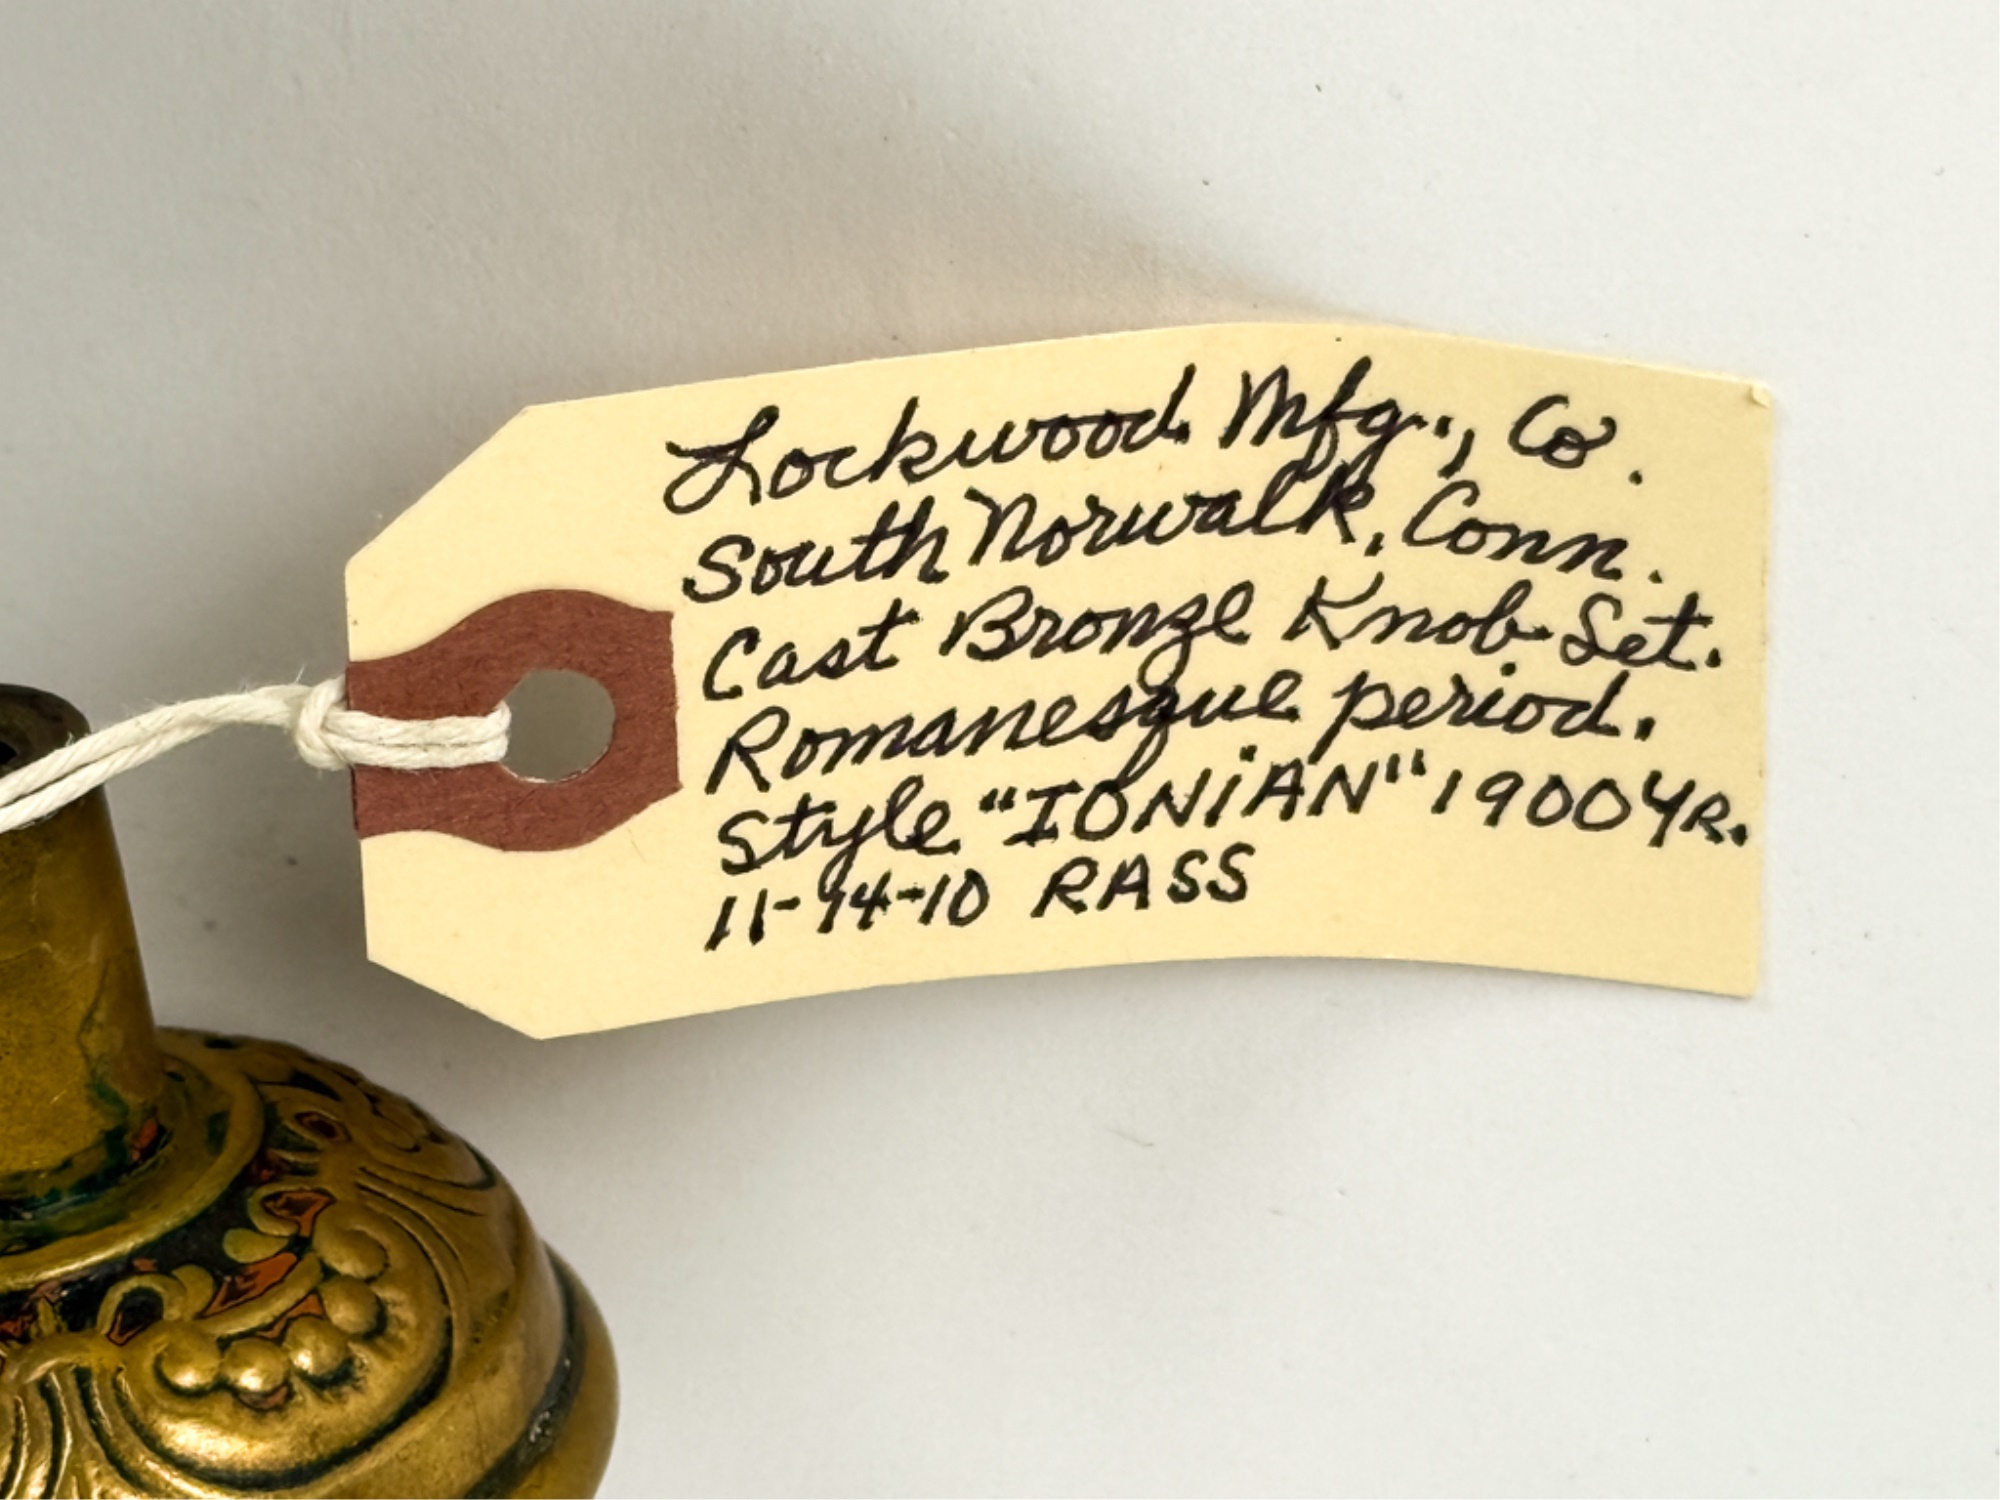 Lockwood Mfg., Co.
South Norwalk, Conn.
Cast Bronze Knob Set.
Romanesque period.
Style "IONiAN" 1900 YR.
11-94-10 RASS